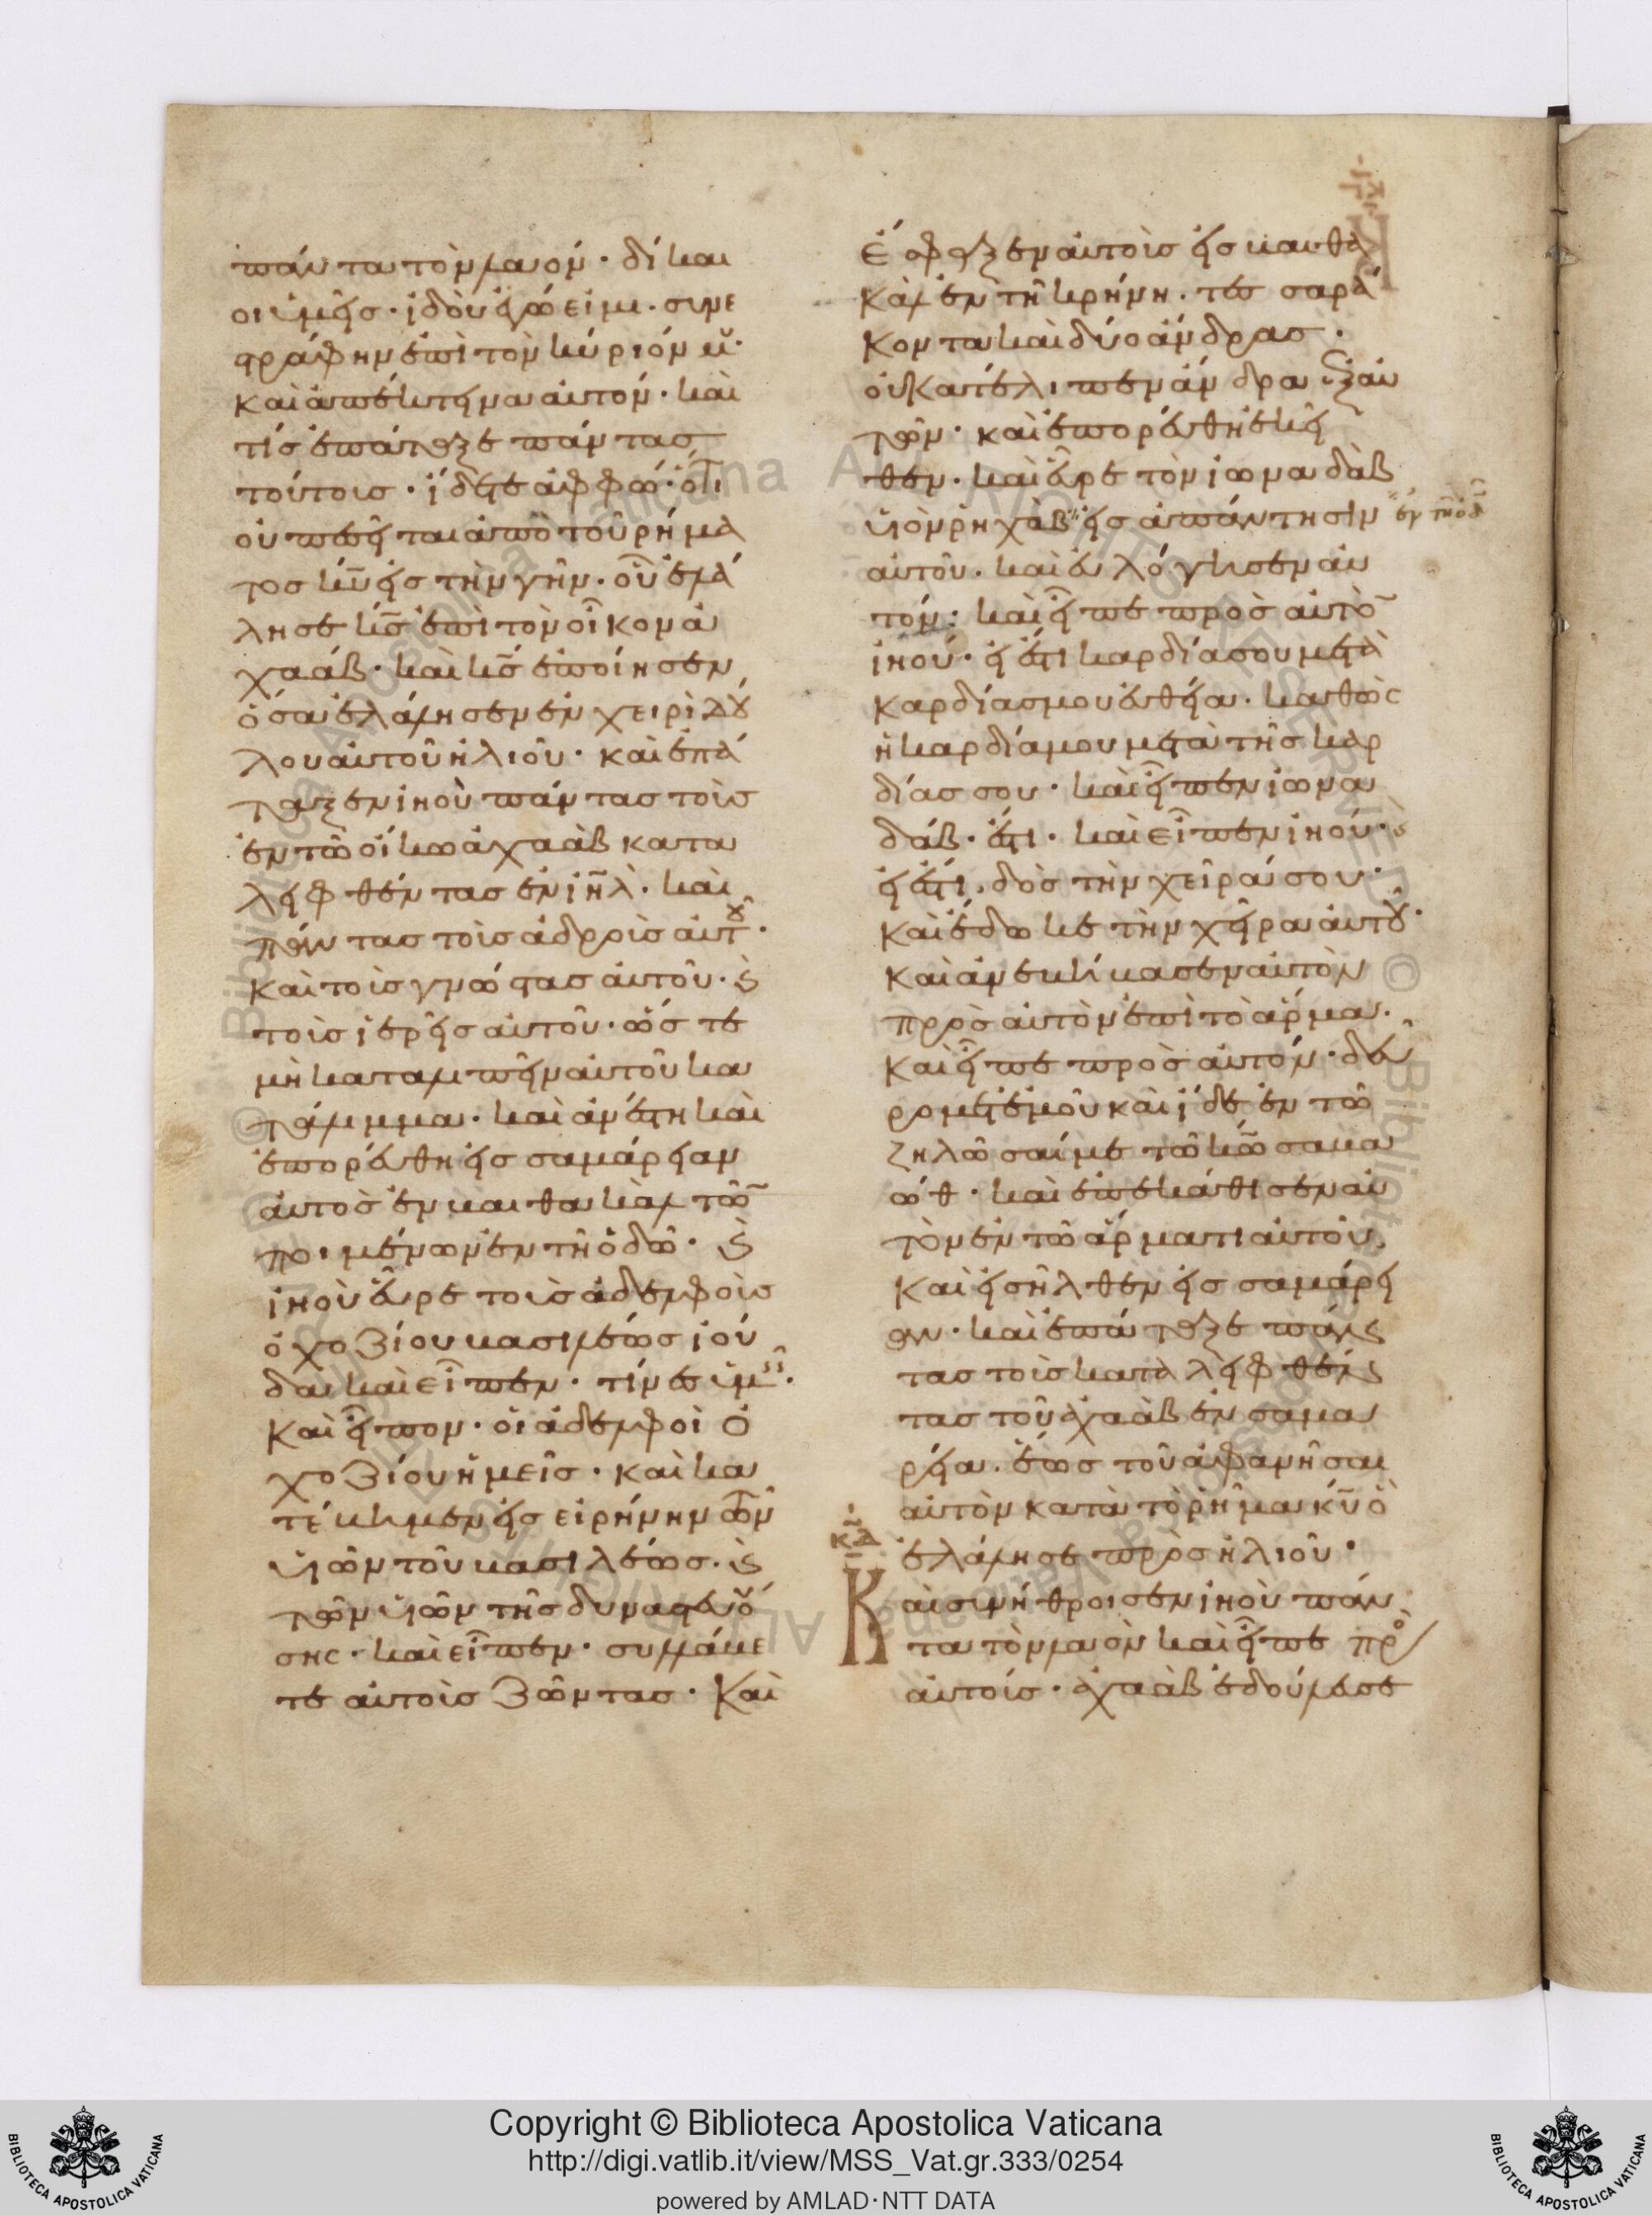 πάντα τὸν λαόν· δίκαι
οι ὑμεῖς· ἰδοὺ ἐγώ εἰμι. συνε
στράφην ἐπὶ τὸν κύριόν μου·
καὶ ἀπέκτεινα αὐτόν· καὶ
τίς ἐπάταξε πάντας
τούτοις· ἴδετε ἀφφώ· ὅτι
οὐ πεσεῖται ἀπὸ τοῦ ῥήμα
τος κ̅υ̅ εἰς τὴν γῆν. οὗ ἐλά
λησε κ̅ς̅ ἐπὶ τὸν οἶκον ἀ
χαάβ· καὶ κ̅ς̅ ἐποίησεν
ὅσα ἐλάλησεν ἐν χειρὶ δού
λου αὐτοῦ ἠλιοῦ· καὶ ἐπά
ταξεν ἰηοὺ πάντας τοὺς
ἐν τῶ οἴκω ἀχαὰβ κατα
λειφθέντας ἐν ἰ̅η̅λ̅. καὶ
πάντας τοὺς ἁδροὺς αὐτοῦ·
καὶ τοὺς γνώστας αὐτοῦ· καὶ
τοὺς ἱερεῖς αὐτοῦ· ὥστε
μὴ καταλιπεῖν αὐτοῦ κα
τάλιμμα· καὶ ἀνέστη καὶ
ἐπορεύθη εἰς σαμάρειαν
αὐτὸς ἐν βαιθακὰλ τῶν
ποιμένων ἐν τῆ ὁδῶ· καὶ
ἰηοὺ εὗρε τοὺς ἀδελφοὺς
ὀχοζίου βασιλέως ἰού
δα καὶ εἶπεν· τίνες ὑμεῖς·
καὶ εἶπον· οἱ ἀδελφοὶ ὀ
χοζίου ἡμεῖς· καὶ κα
τέβημεν εἰς εἰρήνην τῶν
υἱῶν τοῦ βασιλέως· καὶ
τῶν υἱῶν τῆς δυναστευού
σης· καὶ εἶπεν· συλλάβε
τε αὐτοὺς ζῶντας· Καὶ
ἔσφαξεν αὐτοὺς εἰς βαιθα
κὰλ ἐν τῆ κρήνη· τεσσαρά
κοντα καὶ δύο ἄνδρας·
οὐ κατέλιπεν ἄνδρα ἐξ αὐ
τῶν· καὶ ἐπορεύθη ἐκεῖ
θεν· καὶ εὗρε τὸν ἰωναδὰβ
υἱὸν ῥηχὰβ εἰς ἀπάντησιν ἐν τῆ ὁδῶ
αὐτοῦ· καὶ εὐλόγησεν αὐ
τόν· καὶ εἶπε πρὸς αὐτὸν
ἰηού· εἰ ἔστι καρδία σου μετὰ
καρδίας μου εὐθεῖα· καθὼς
ἡ καρδία μου μετὰ τῆς καρ
δίας σου· καὶ εἶπεν ἰωνα
δάβ· ἔστι· καὶ εἶπεν ἰηού·
εἰ ἔστι, δὸς τὴν χεῖρά σου·
καὶ ἔδωκε τὴν χεῖρα αὐτοῦ·
καὶ ἀνεβίβασεν αὐτὸν
πρὸς αὐτὸν ἐπὶ τὸ ἅρμα·
καὶ εἶπε πρὸς αὐτόν· δεῦ
ρο μετ' ἐμοῦ καὶ ἴδε ἐν τῶ
ζηλῶσαί με τῶ κ̅ω̅ σαβα
ώθ· καὶ ἐπεκάθισεν αὐ
τὸν ἐν τῶ ἅρματι αὐτοῦ.
καὶ εἰσῆλθεν εἰς σαμάρει
αν· καὶ ἐπάταξε πάν
τας τοὺς καταλειφθέν
τας τοῦ ἀχαὰβ ἐν σαμα
ρεία. ἕως τοῦ ἀφανῆσαι
αὐτὸν κατὰ τὸ ῥῆμα κ̅υ̅ ὃ
ἐλάλησε πρὸς ἠλιοῦ·
κ̅δ̅
Καὶ συνήθροισεν ἰηοὺ πάν
τα τὸν λαὸν καὶ εἶπε πρὸς
αὐτούς· ἀχαὰβ ἐδούλευσε
Copyright © Biblioteca Apostolica Vaticana
http://digi.vatlib.it/view/MSS_Vat.gr.333/0254
powered by AMLAD·NTT DATA
BIBLIOTECA APOSTOLICA VATICANA
BIBLIOTECA APOSTOLICA VATICANA